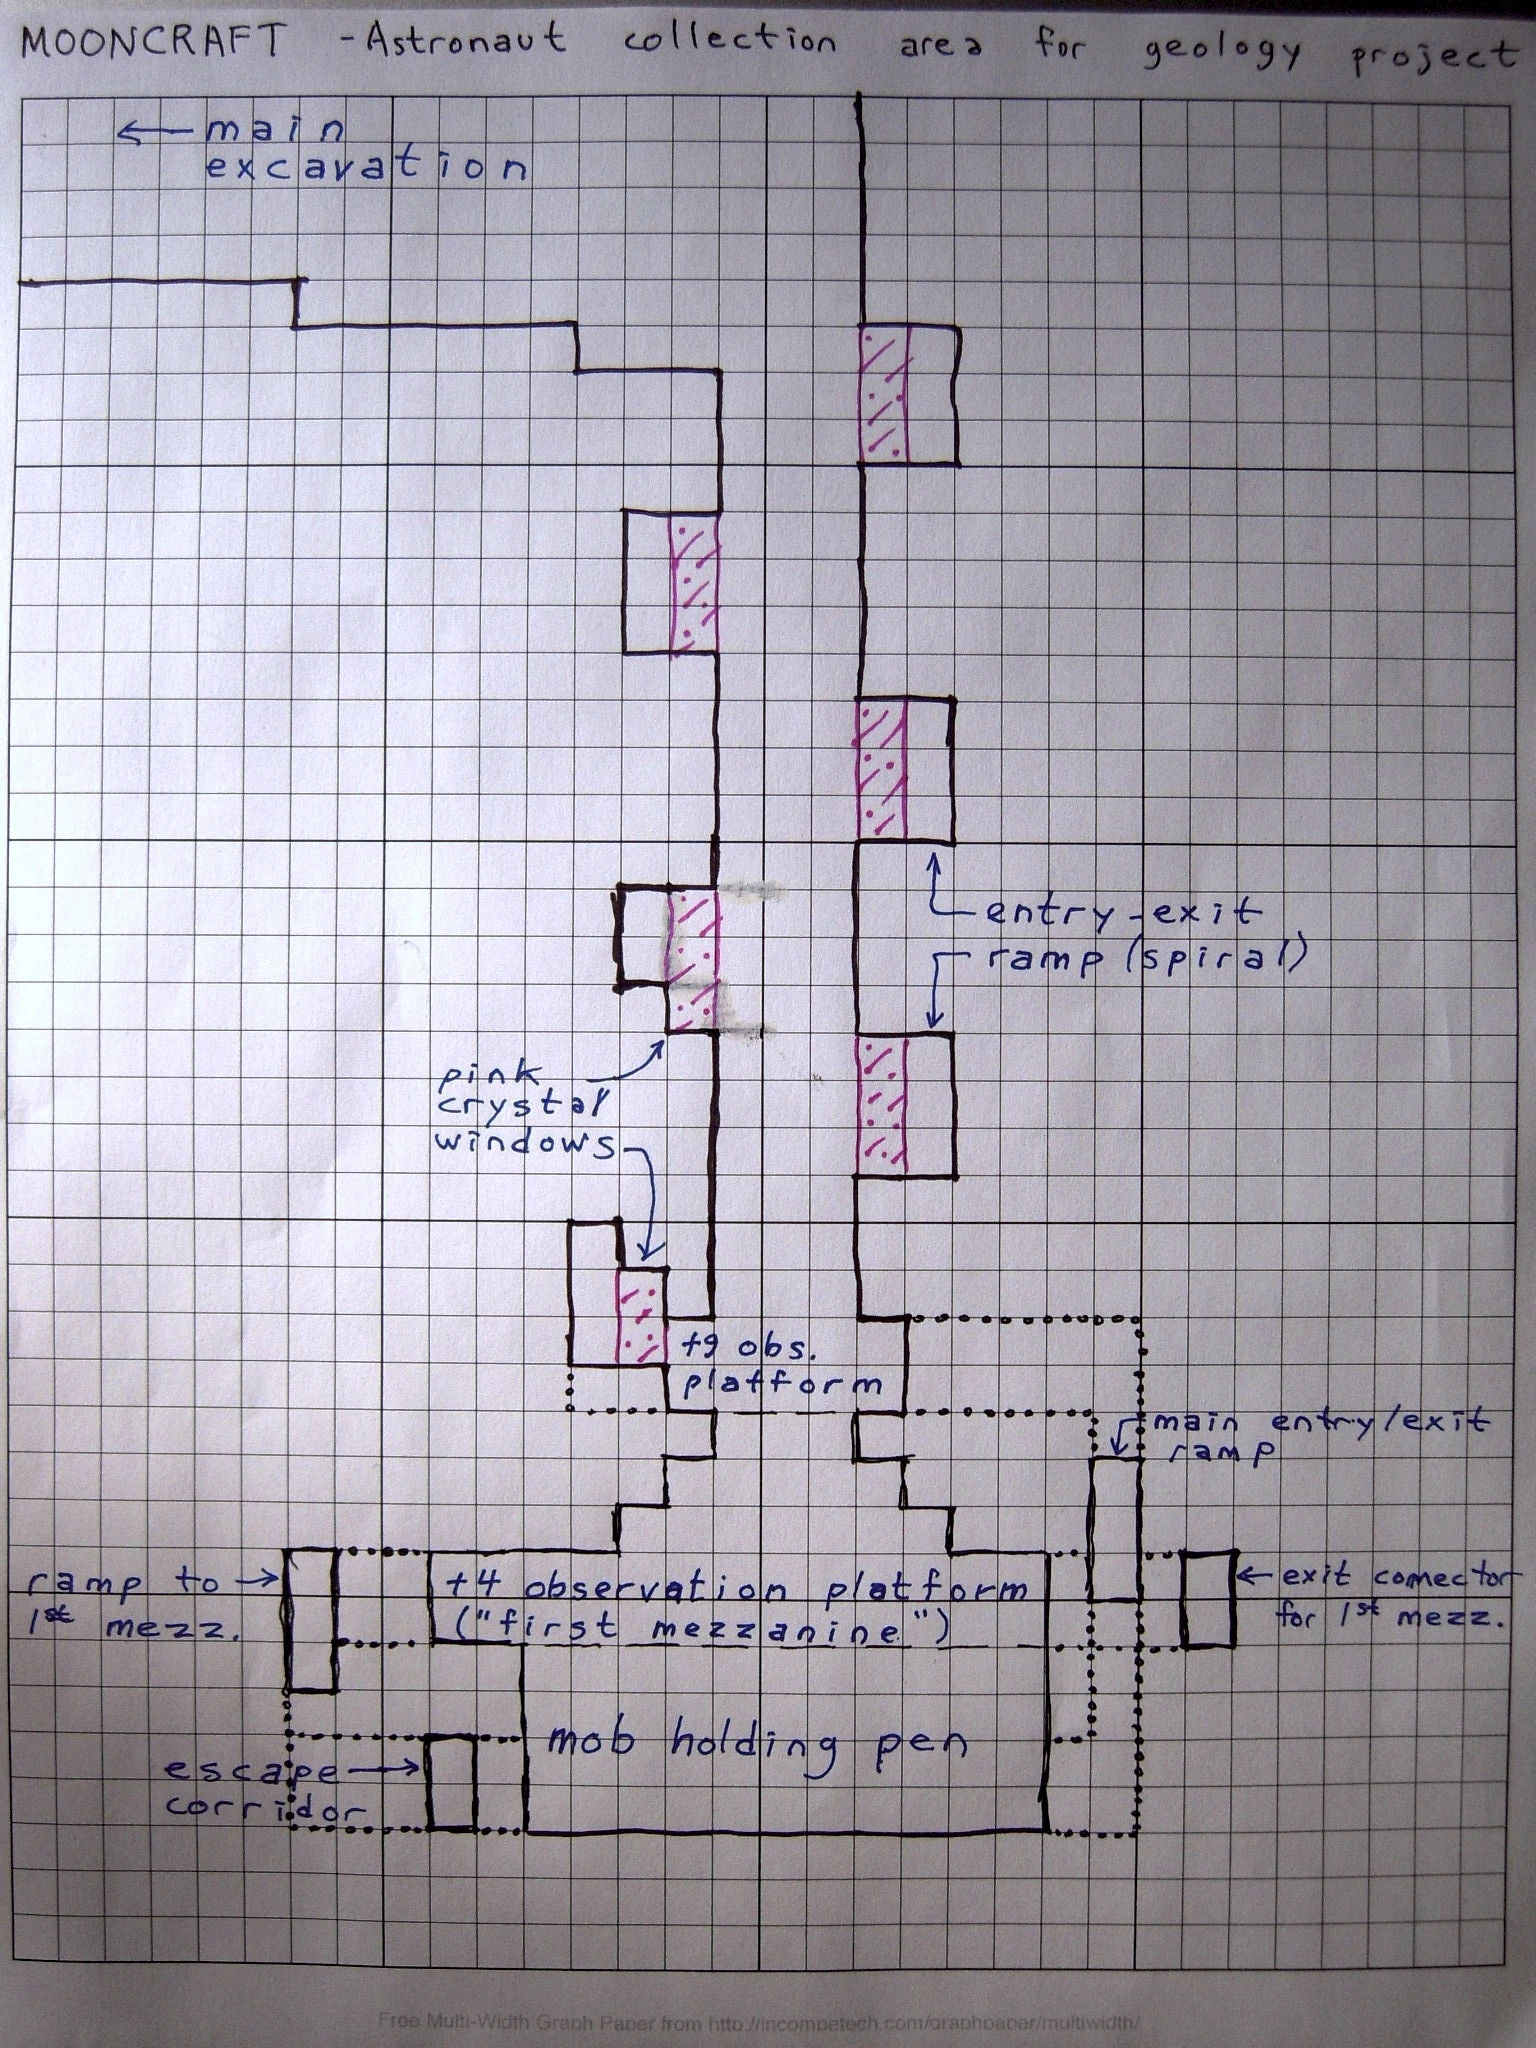 MOONCRAFT - Astronaut collection area for geology project
← main
excavation
entry-exit
ramp (spiral)
pink
crystal
windows
+9 obs.
platform
main entry/exit
ramp
ramp to →
1st mezz.
+4 observation platform
("first mezzanine")
← exit connector
for 1st mezz.
mob holding pen
escape →
corridor
Free Multi-Width Graph Paper from http://incompetech.com/graphpaper/multiwidth/